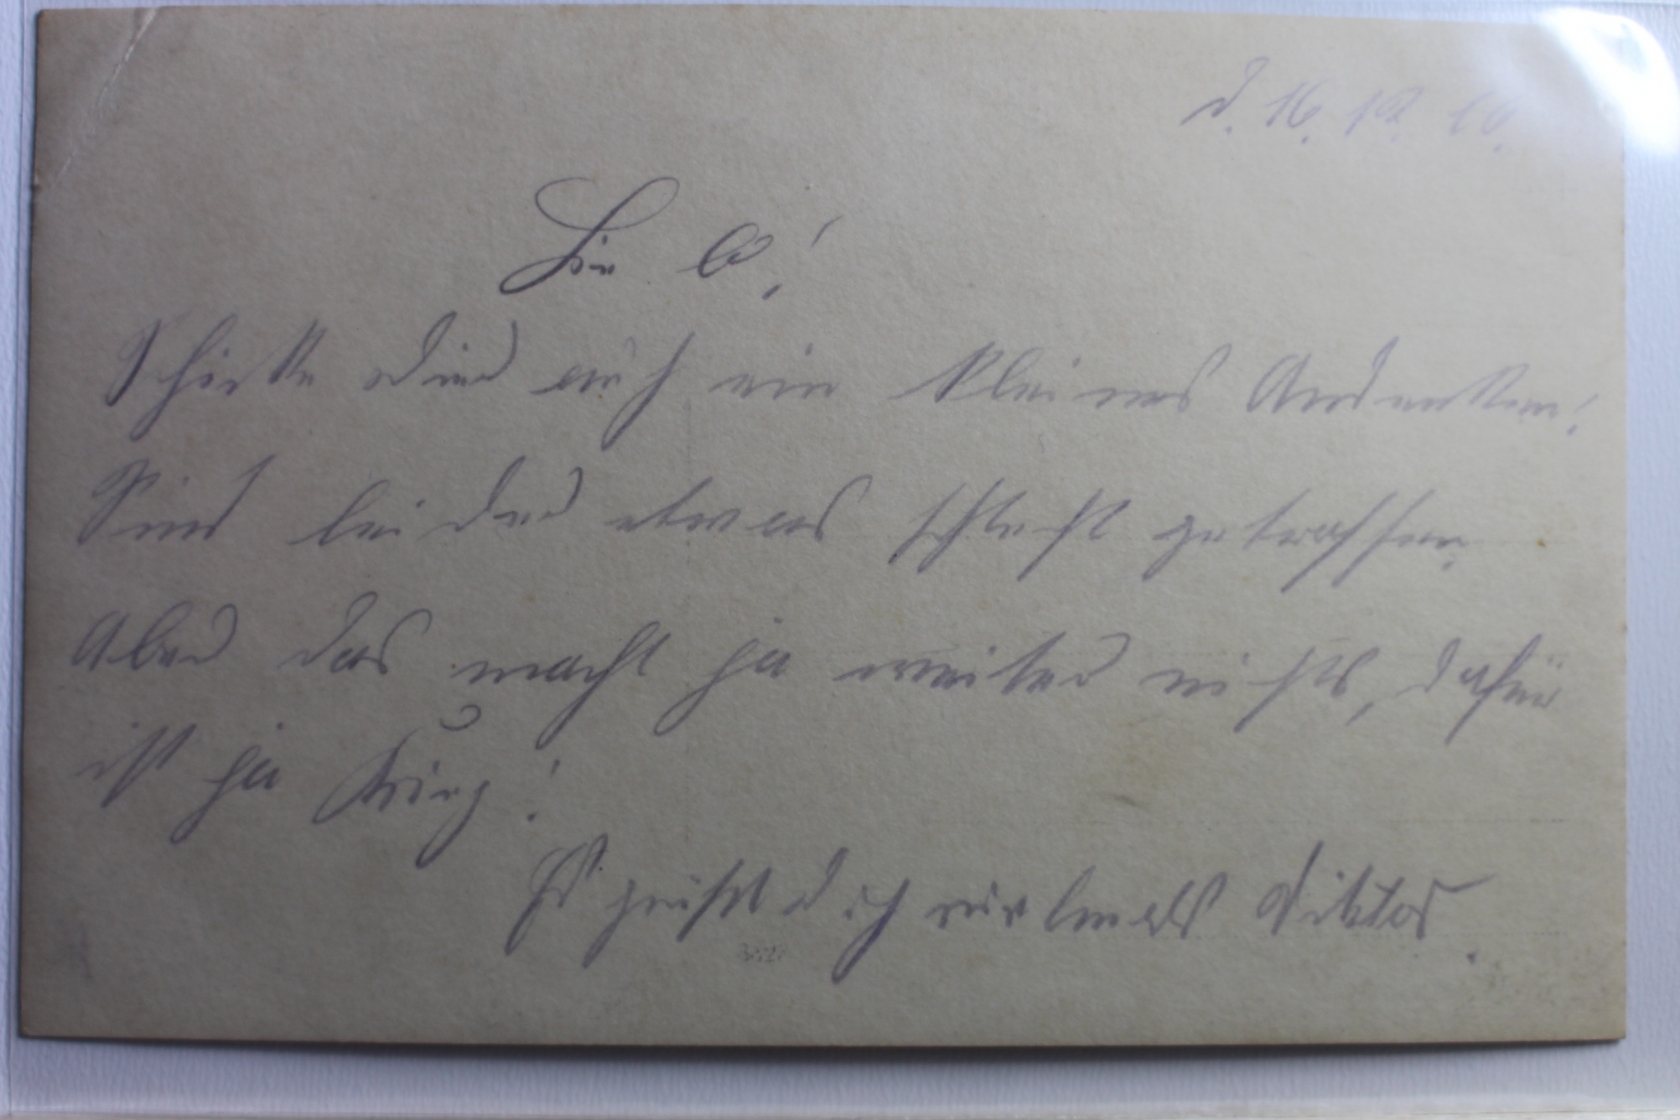 d. 16. 12. 16.
Schicke Dir auch ein kleines Andenken!
Sind leider etwas schlecht getroffen.
Aber das macht ja weiter nichts, dafür
ist ja Krieg!
Es grüßt dich vielmals Viktor.